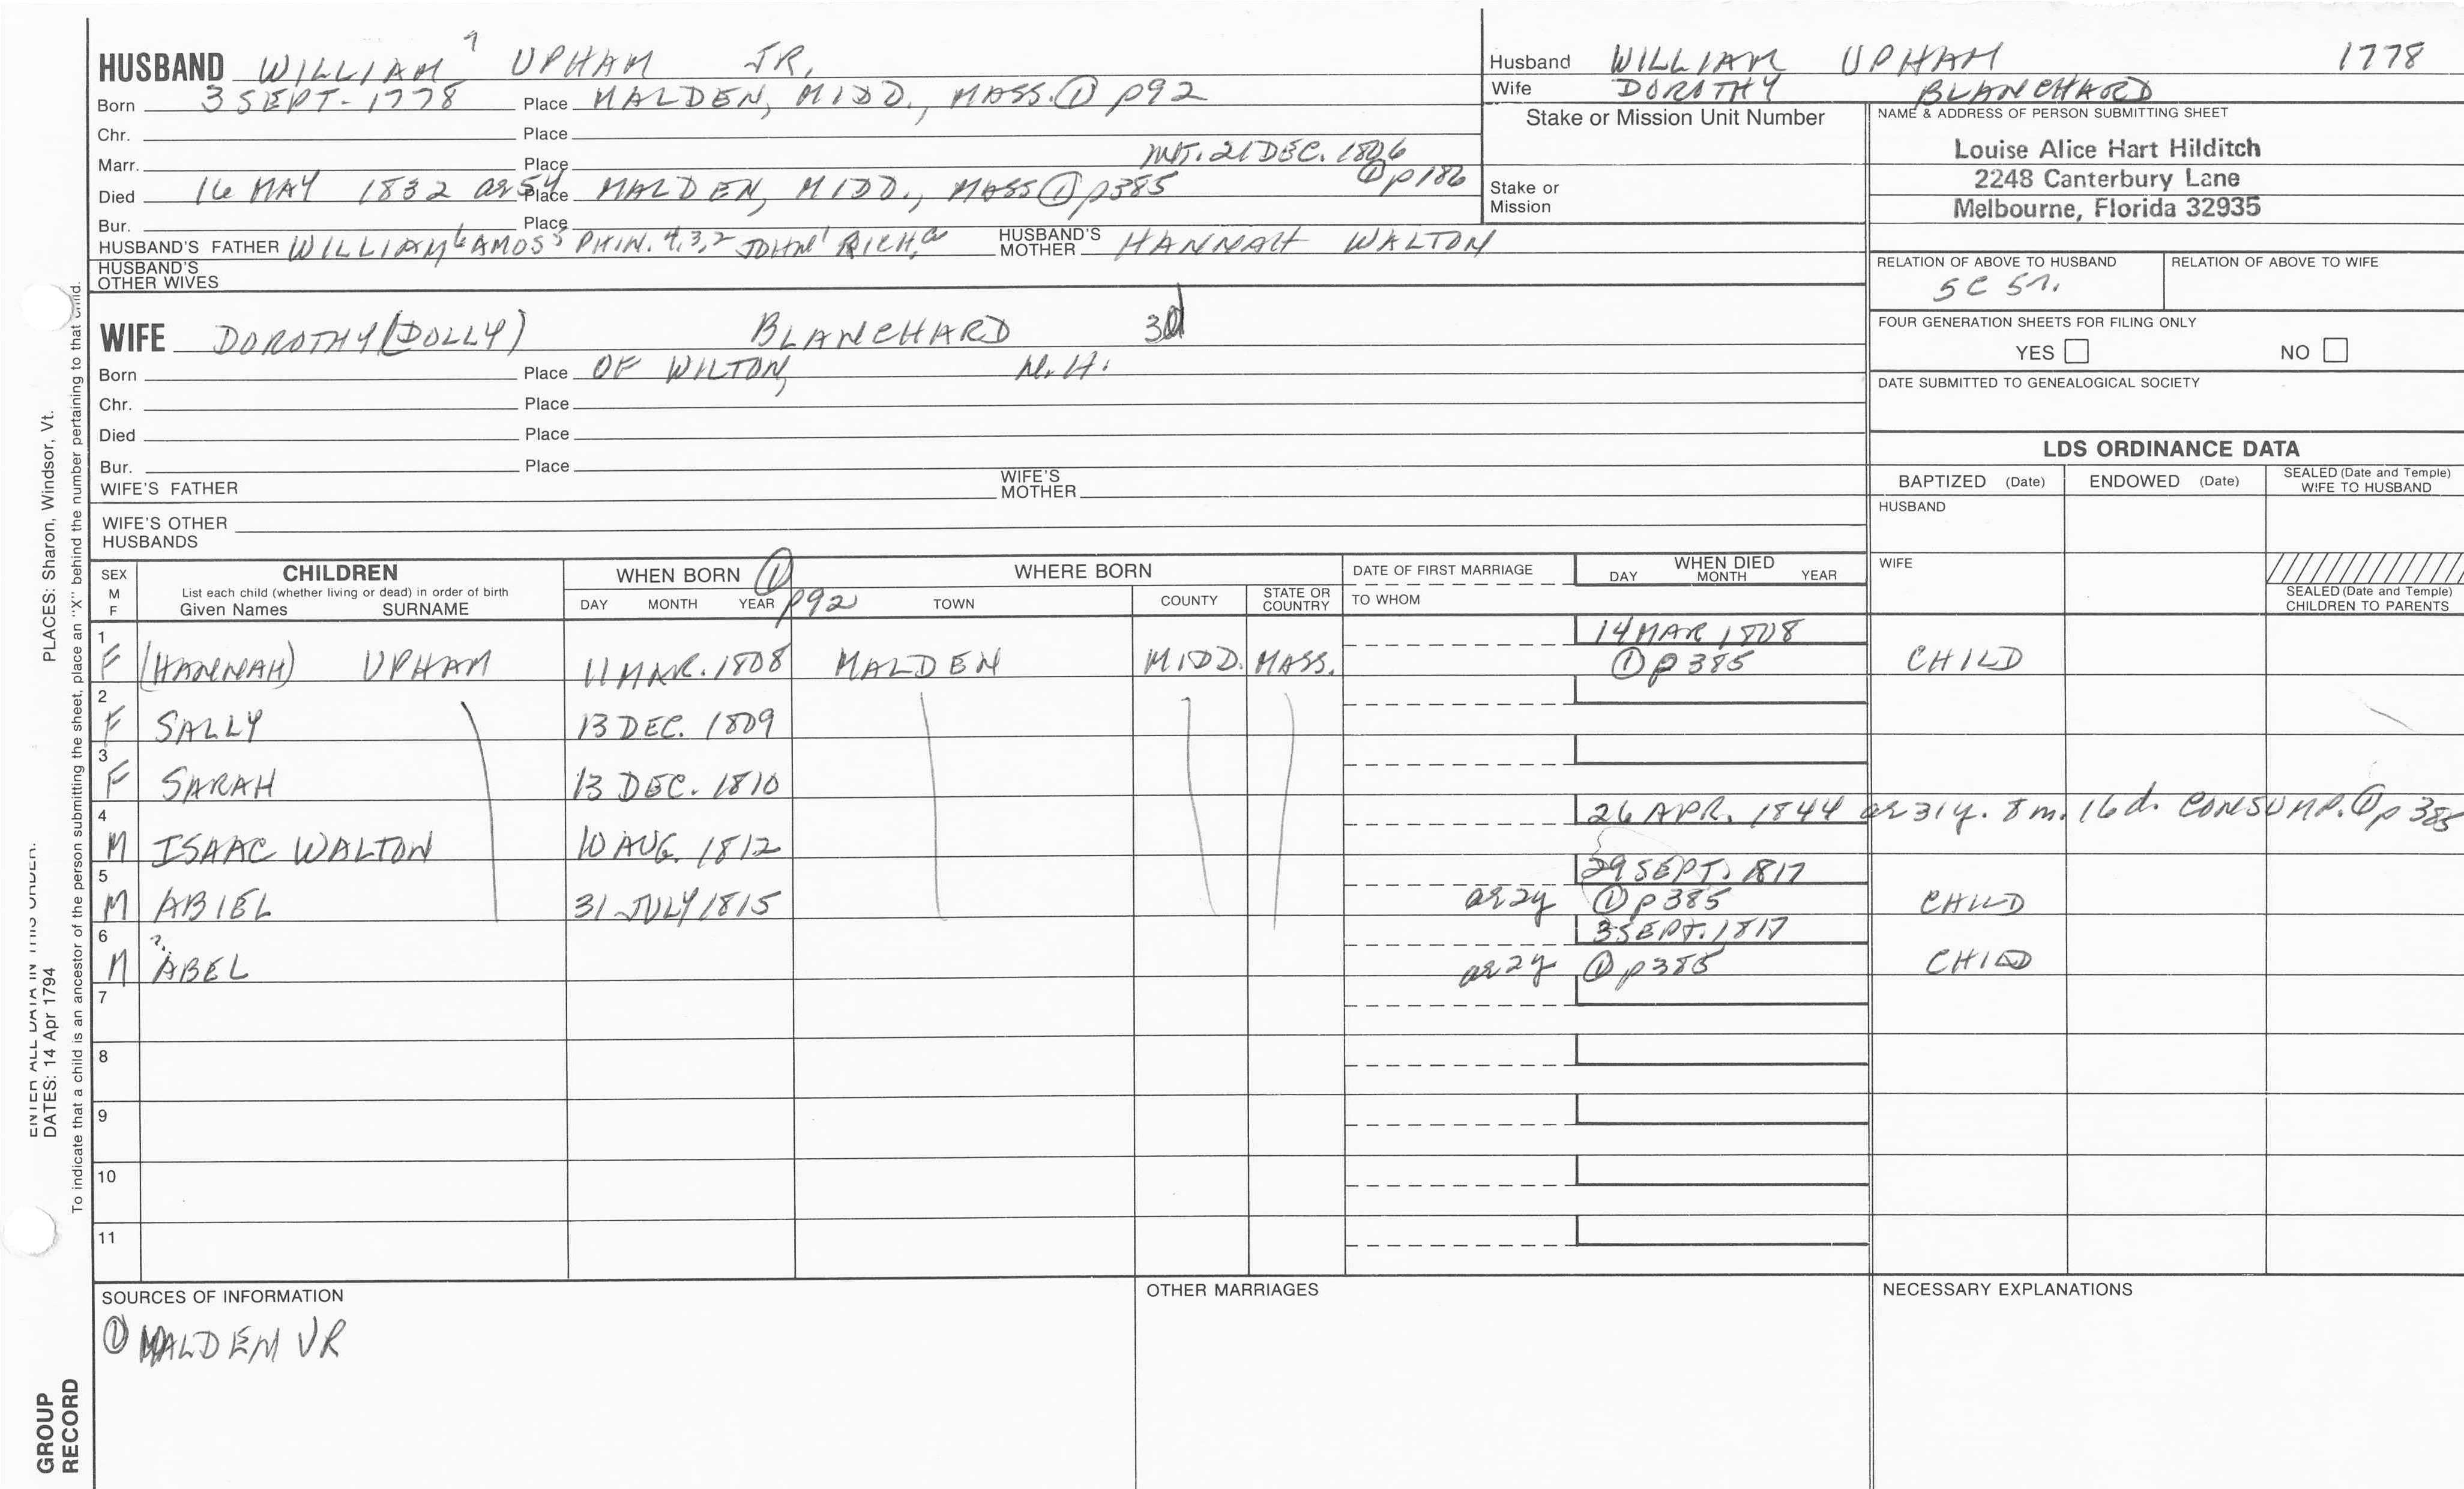 HUSBAND WILLIAM 7 UPHAM JR.
Born 3 SEPT. 1778 Place MALDEN, MIDD., MASS. ① p92
Chr. Place
Marr. Place INT. 21 DEC. 1806 ① p186
Died 16 MAY 1832 ae 54 Place MALDEN, MIDD., MASS ① p385
Bur. Place
HUSBAND'S FATHER WILLIAM 6 AMOS 5 PHIN. 4,3,2 JOHN 1 RICH. a HUSBAND'S MOTHER HANNAH WALTON
HUSBAND'S OTHER WIVES
WIFE DOROTHY (DOLLY) BLANCHARD 3d
Born Place OF WILTON, N.H.
Chr. Place
Died Place
Bur. Place
WIFE'S FATHER WIFE'S MOTHER
WIFE'S OTHER HUSBANDS
Husband WILLIAM UPHAM 1778
Wife DOROTHY BLANCHARD
Stake or Mission Unit Number
Stake or Mission
NAME & ADDRESS OF PERSON SUBMITTING SHEET
Louise Alice Hart Hilditch
2248 Canterbury Lane
Melbourne, Florida 32935
RELATION OF ABOVE TO HUSBAND RELATION OF ABOVE TO WIFE
5C 5r.
FOUR GENERATION SHEETS FOR FILING ONLY
YES NO
DATE SUBMITTED TO GENEALOGICAL SOCIETY
LDS ORDINANCE DATA
BAPTIZED (Date) ENDOWED (Date) SEALED (Date and Temple) WIFE TO HUSBAND
HUSBAND
WIFE
SEALED (Date and Temple) CHILDREN TO PARENTS
SEX M F CHILDREN List each child (whether living or dead) in order of birth Given Names SURNAME
WHEN BORN ① p92 DAY MONTH YEAR
WHERE BORN TOWN COUNTY STATE OR COUNTRY
DATE OF FIRST MARRIAGE TO WHOM
WHEN DIED DAY MONTH YEAR
1 F (HANNAH) UPHAM 11 MAR. 1808 MALDEN MIDD. MASS. 14 MAR 1808 ① p 385 CHILD
2 F SALLY 13 DEC. 1809
3 F SARAH 13 DEC. 1810
4 M ISAAC WALTON 10 AUG. 1812 26 APR. 1844 ae 31y. 8m. 16d. CONSUMP. ① p 385
5 M ABIEL 31 JULY 1815 ae 2y 29 SEPT. 1817 ① p 385 CHILD
6 M ?. ABEL ae 2y 3 SEPT. 1817 ① p385 CHILD
7
8
9
10
11
SOURCES OF INFORMATION
① MALDEN VR
OTHER MARRIAGES
NECESSARY EXPLANATIONS
PLACES: Sharon, Windsor, Vt.
ENTER ALL DATA IN THIS ORDER:
DATES: 14 Apr 1794
To indicate that a child is an ancestor of the person submitting the sheet, place an "X" behind the number pertaining to that child.
GROUP RECORD